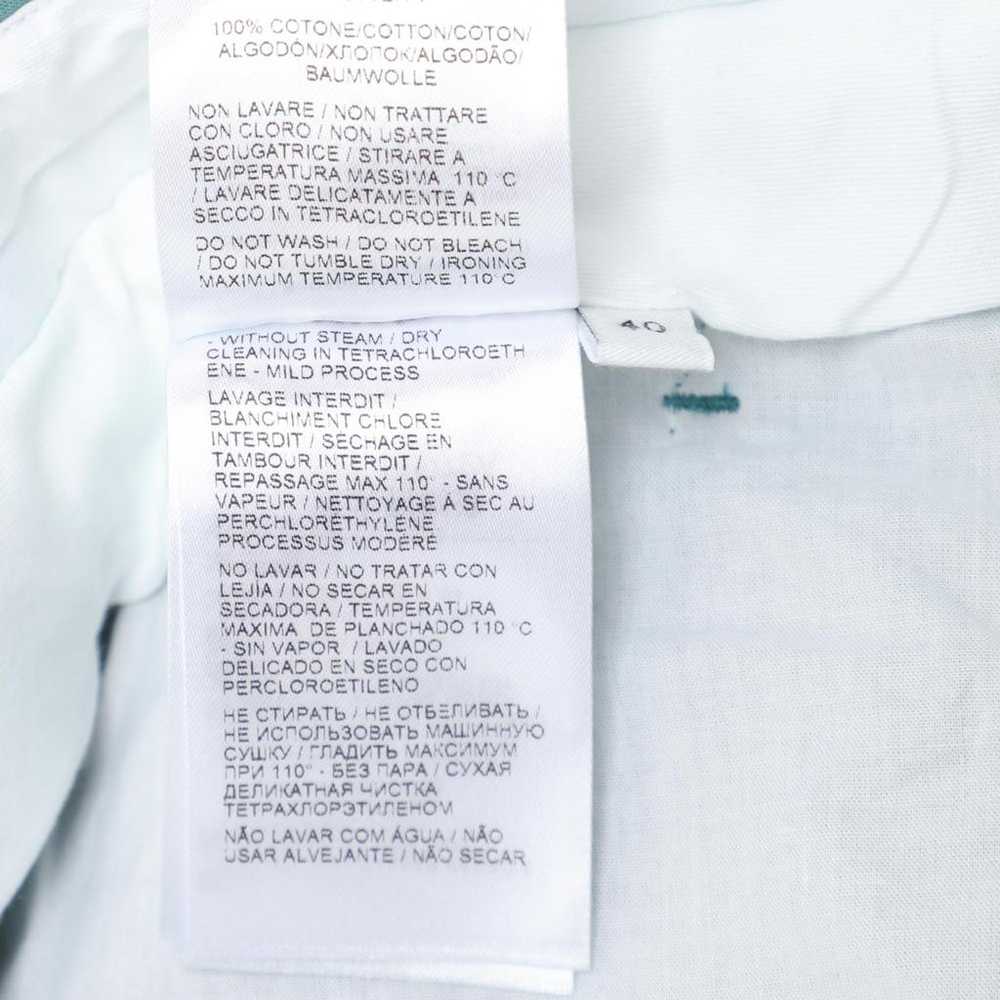 100% COTONE/COTTON/COTON/
ALGODÓN/ХЛОПОК/ALGODÃO/
BAUMWOLLE
NON LAVARE / NON TRATTARE
CON CLORO / NON USARE
ASCIUGATRICE / STIRARE A
TEMPERATURA MASSIMA 110 °C
/ LAVARE DELICATAMENTE A
SECCO IN TETRACLOROETILENE
DO NOT WASH / DO NOT BLEACH
/ DO NOT TUMBLE DRY / IRONING
MAXIMUM TEMPERATURE 110°C
- WITHOUT STEAM / DRY
CLEANING IN TETRACHLOROETH
ENE - MILD PROCESS
LAVAGE INTERDIT /
BLANCHIMENT CHLORE
INTERDIT / SÉCHAGE EN
TAMBOUR INTERDIT /
REPASSAGE MAX 110° - SANS
VAPEUR / NETTOYAGE À SEC AU
PERCHLORÉTHYLÈNE
PROCESSUS MODÉRÉ
NO LAVAR / NO TRATAR CON
LEJÍA / NO SECAR EN
SECADORA / TEMPERATURA
MAXIMA DE PLANCHADO 110 °C
- SIN VAPOR / LAVADO
DELICADO EN SECO CON
PERCLOROETILENO
НЕ СТИРАТЬ / НЕ ОТБЕЛИВАТЬ /
НЕ ИСПОЛЬЗОВАТЬ МАШИННУЮ
СУШКУ / ГЛАДИТЬ МАКСИМУМ
ПРИ 110° - БЕЗ ПАРА / СУХАЯ
ДЕЛИКАТНАЯ ЧИСТКА
ТЕТРАХЛОРЭТИЛЕНОМ
NÃO LAVAR COM ÁGUA / NÃO
USAR ALVEJANTE / NÃO SECAR
40